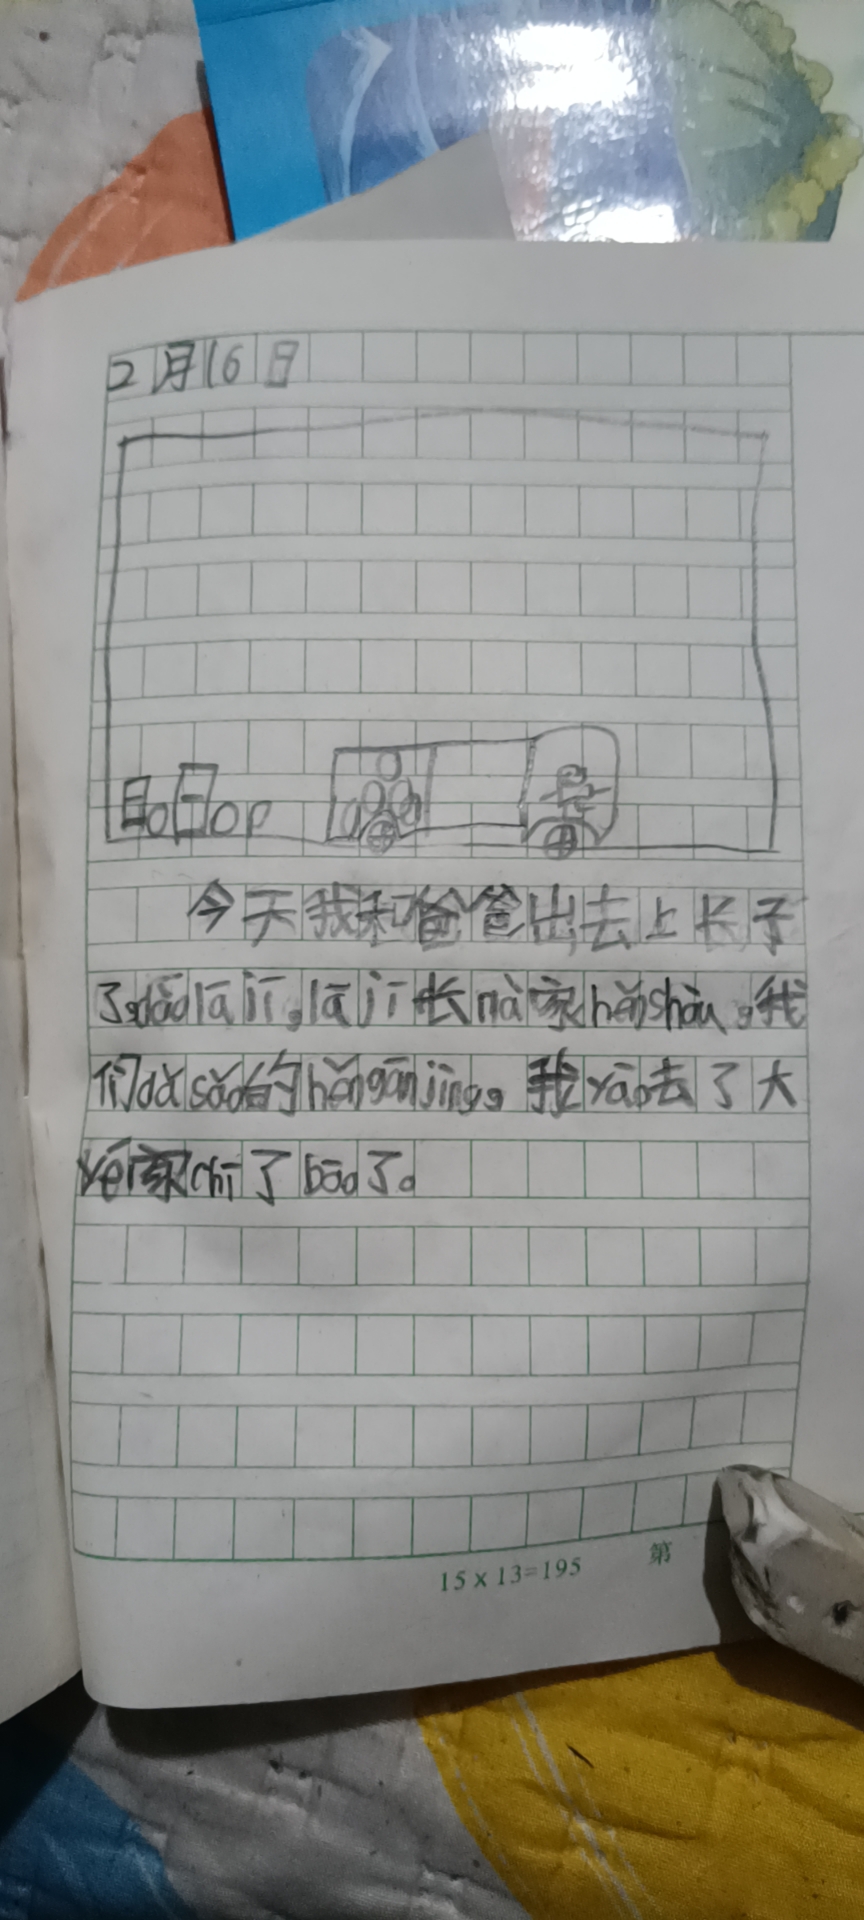 2月16日
今天我和爸爸出去上长子
了,dào lā jī,lā jī 长 nà 家 hěn shǎu,我
们 dǎ sǎo 的 hěn gān jìng,我 yào 去了大
yé 家 chī 了 bāo 了。
15×13=195 第